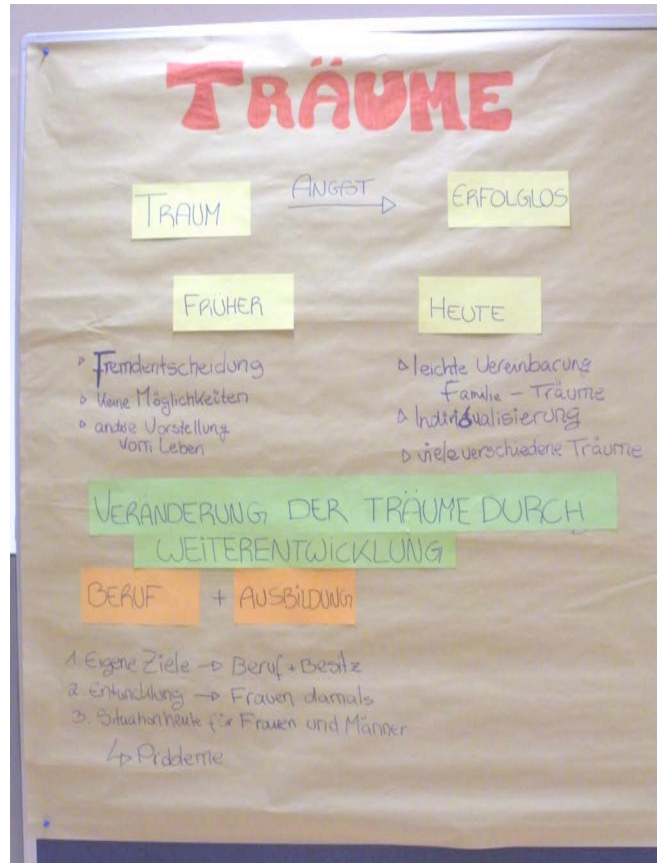 TRÄUME
TRAUM ANGST → ERFOLGLOS
FRÜHER
HEUTE
Fremdentscheidung
keine Möglichkeiten
andere Vorstellung
vom Leben
leichte Vereinbarung
Familie – Träume
Individualisierung
viele verschiedene Träume
VERÄNDERUNG DER TRÄUME DURCH
WEITERENTWICKLUNG
BERUF + AUSBILDUNG
1. Eigene Ziele → Beruf + Besitz
2. Entwicklung → Frauen damals
3. Situation heute für Frauen und Männer
↳ Probleme